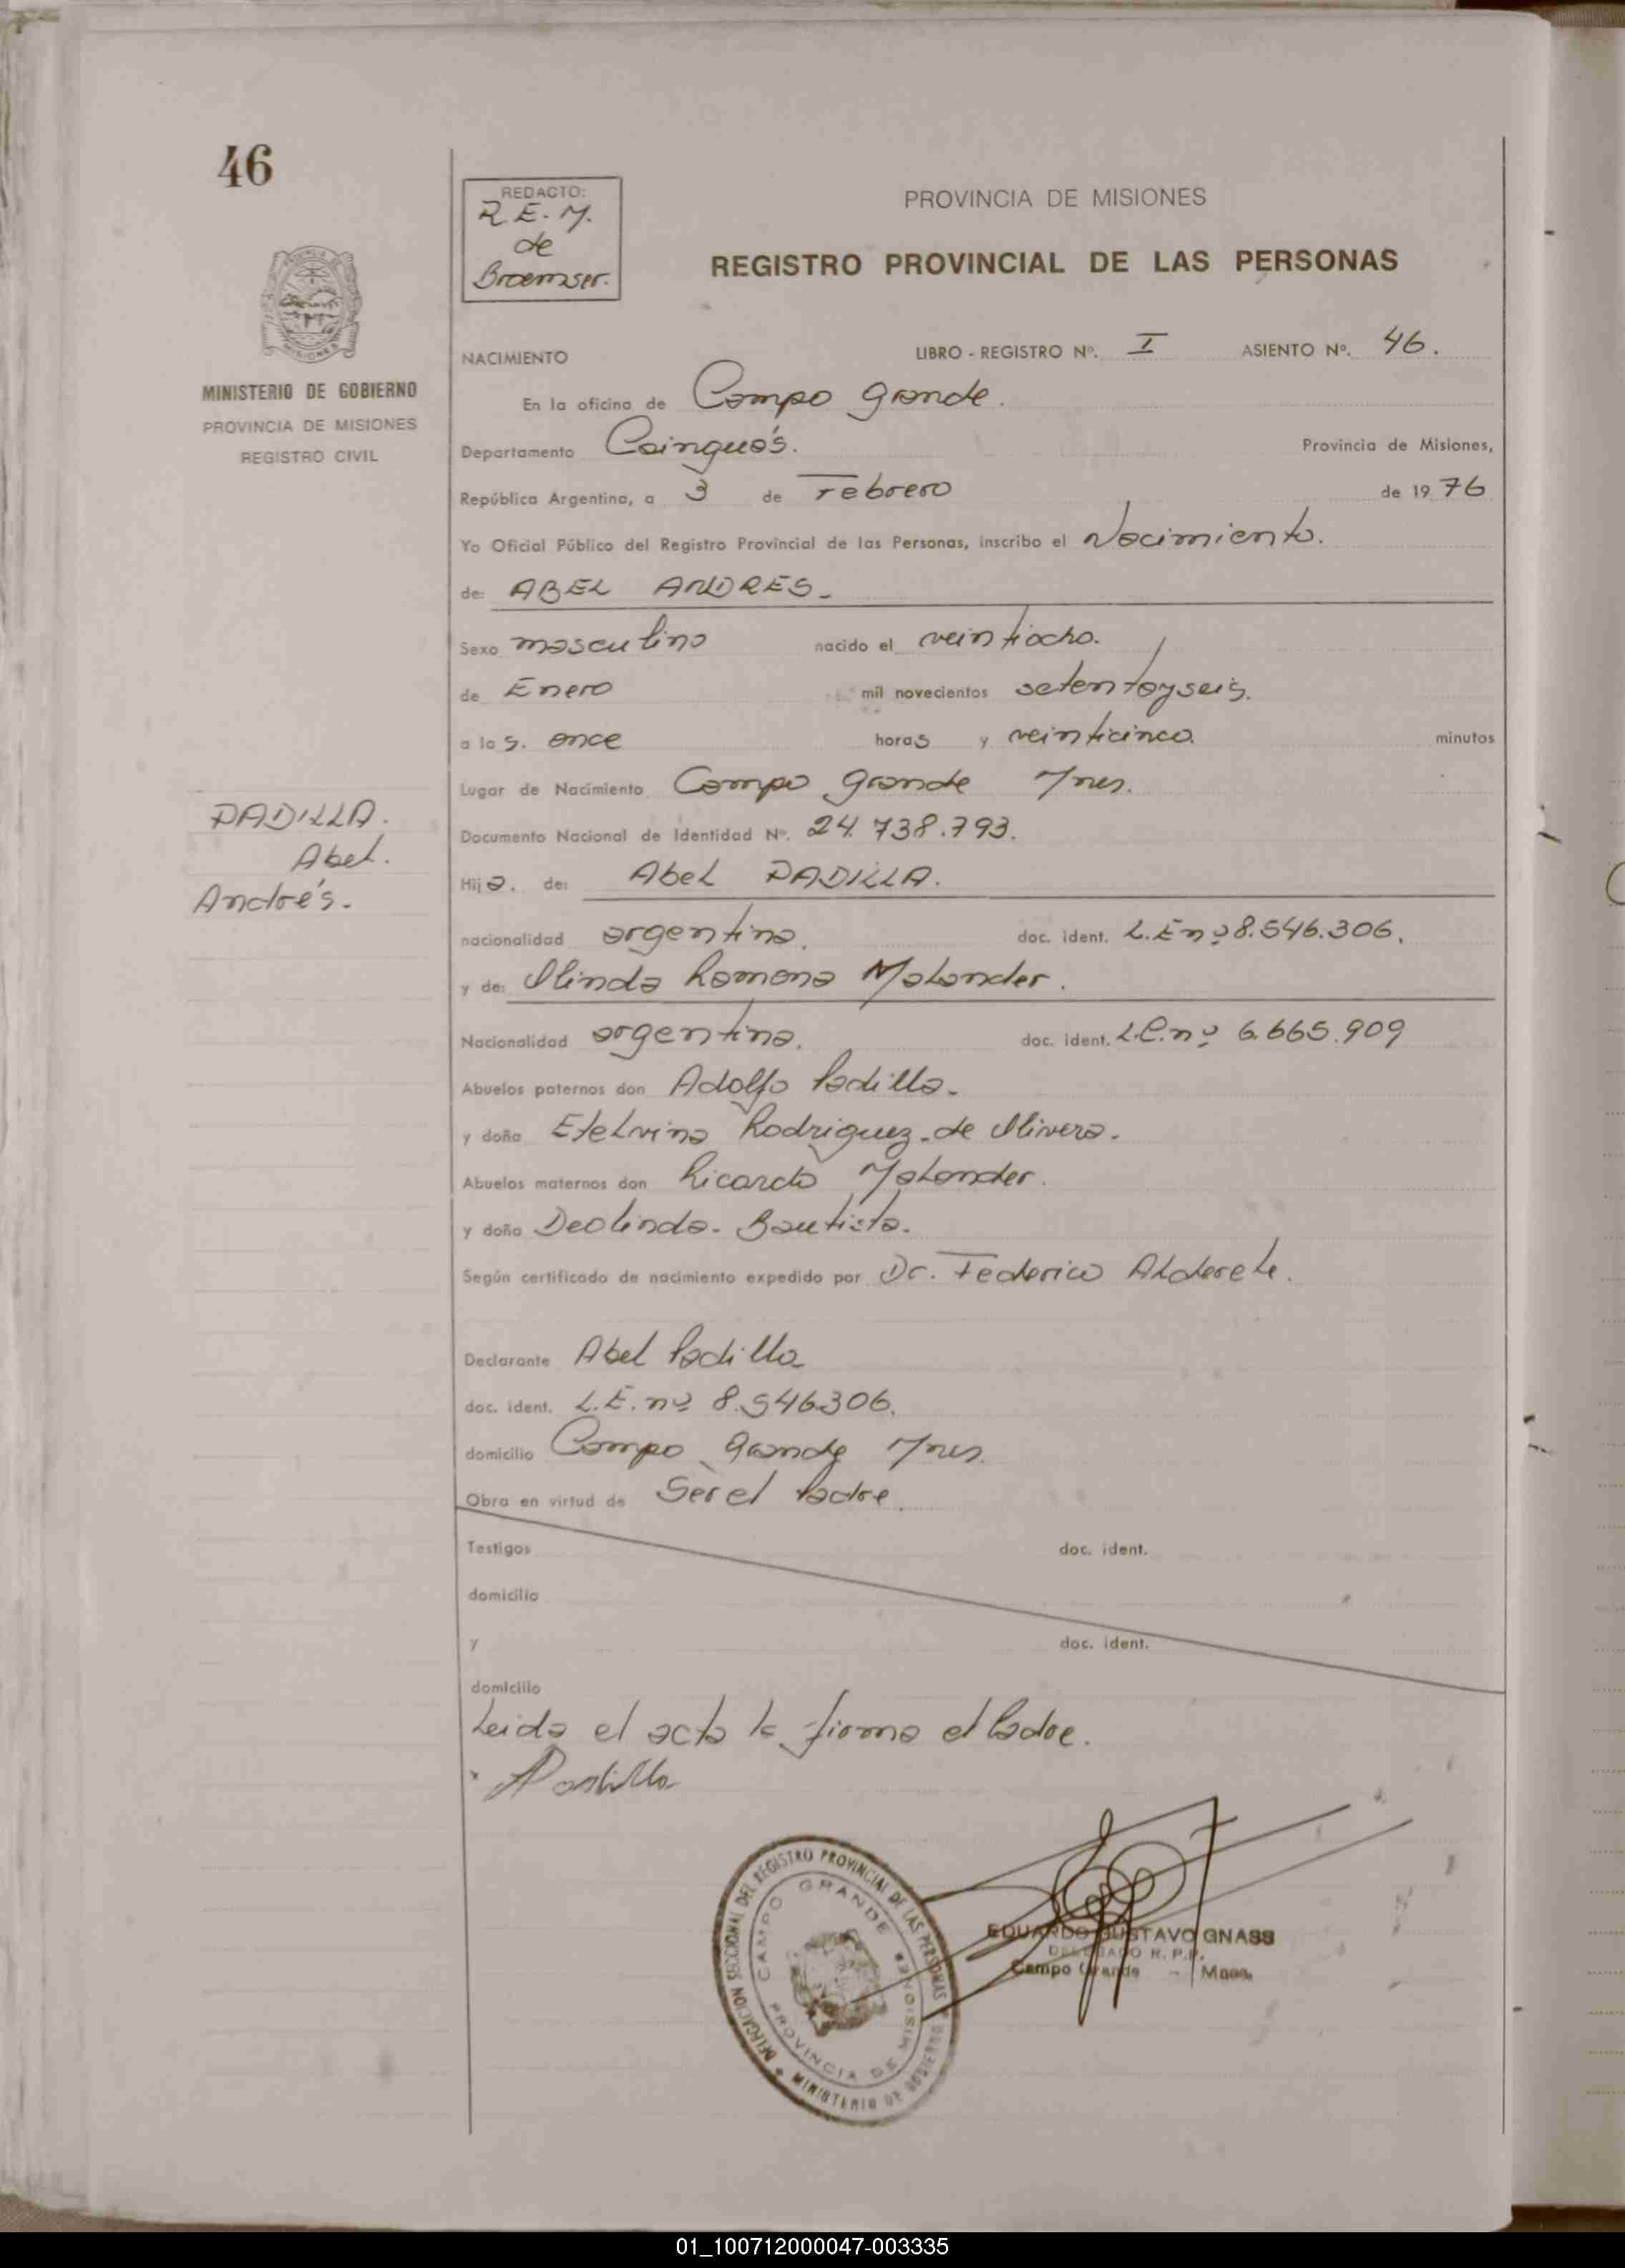 46
REDACTO:
R. E. M.
de
Broemser.
PROVINCIA DE MISIONES
REGISTRO PROVINCIAL DE LAS PERSONAS
MINISTERIO DE GOBIERNO
PROVINCIA DE MISIONES
REGISTRO CIVIL
NACIMIENTO
LIBRO - REGISTRO Nº. I ASIENTO Nº. 46.
En la oficina de Campo Grande.
Departamento Cainguás. Provincia de Misiones,
República Argentina, a 3 de Febrero de 1976
Yo Oficial Público del Registro Provincial de las Personas, inscribo el Nacimiento.
de: ABEL ANDRES.
Sexo masculino nacido el veintiocho.
de Enero mil novecientos setentayseis.
a las. once horas y veinticinco. minutos
Lugar de Nacimiento Campo Grande Mnes.
Documento Nacional de Identidad Nº. 24.738.793.
PADILLA.
Abel.
Andrés.
Hijo. de: Abel PADILLA.
nacionalidad argentina. doc. ident. L.E nº 8.546.306.
y de: Olinda Ramona Malander.
Nacionalidad argentina. doc. ident. L.C. nº 6.665.909
Abuelos paternos don Adolfo Padilla.
y doña Etelvina Rodriguez. de Olivera.
Abuelos maternos don Ricardo Malander.
y doña Deolinda. Bautista.
Según certificado de nacimiento expedido por Dr. Federico Alderete.
Declarante Abel Padilla
doc. ident. L.E. nº 8.546306.
domicilio Campo Grande Mnes.
Obra en virtud de Ser el Padre.
Testigos doc. ident.
domicilio
y doc. ident.
domicilio
Leida el acta la firma el Padre.
A Padilla
DELEGACION SECCIONAL DEL REGISTRO PROVINCIAL DE LAS PERSONAS
MINISTERIO DE GOBIERNO
CAMPO GRANDE
PROVINCIA DE MISIONES
EDUARDO GUSTAVO GNASS
DELEGADO R. P. P.
Campo Grande - Mnes.
01_100712000047-003335